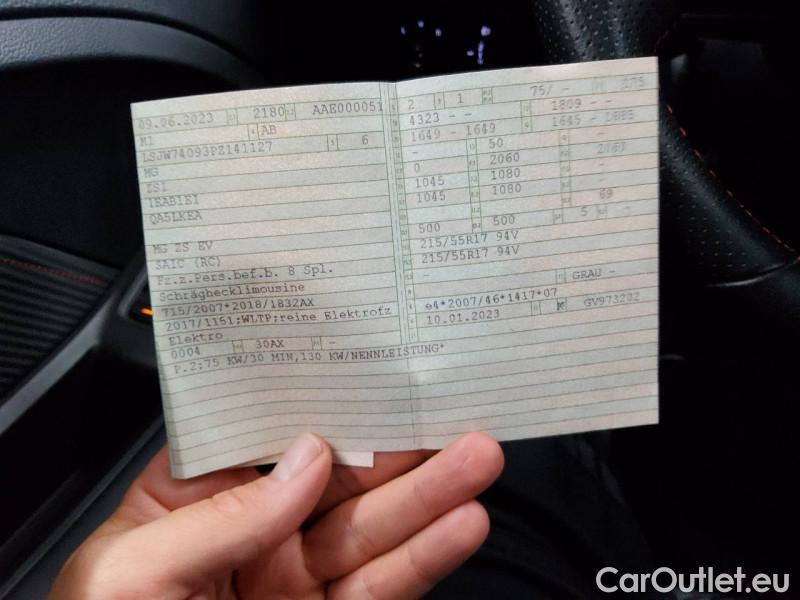 09.06.2023 2180 AAE000051
M1 AB
LSJW74093PZ141127 6
MG
ZS1
1EAB1E1
QA5LKEA
MG ZS EV
SAIC (RC)
Fz.z.Pers.bef.b. 8 Spl.
Schräghecklimousine
715/2007*2018/1832AX
2017/1151;WLTP;reine Elektrofz
Elektro
0004 30AX -
P.2:75 KW/30 MIN,130 KW/NENNLEISTUNG*
2 1 75/ - 175
4323 - - 1809 - -
1649 - 1649 1645 -
- 50 -
0 2060
1045 1080 -
1045 1080
69
500 500 5 -
215/55R17 94V
215/55R17 94V
-
- GRAU -
e4*2007/46*1417*07
10.01.2023 K GV973202
CarOutlet.eu